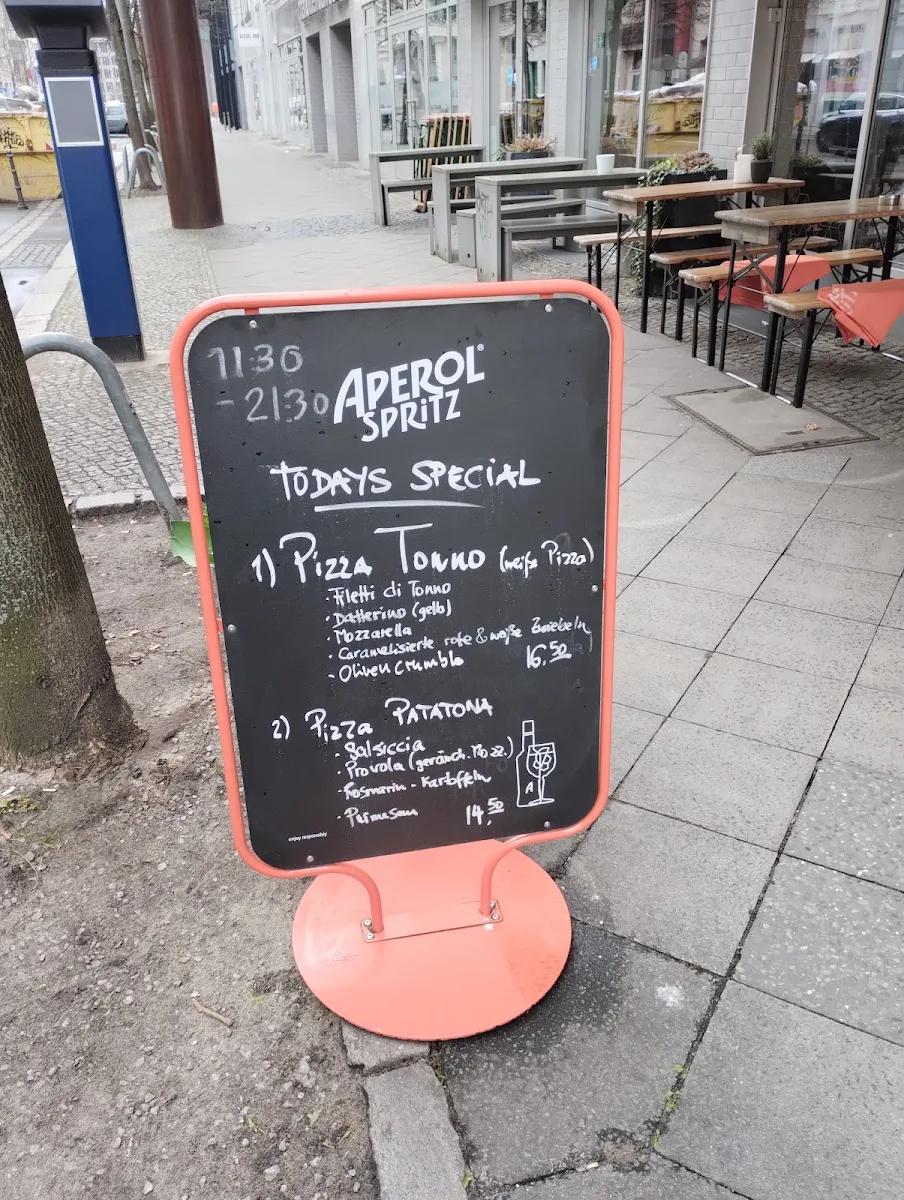 11:30
- 21:30
APEROL®
SPRITZ
TODAYS SPECIAL
1) Pizza Tonno (weiße Pizza)
· Filetti di Tonno
· Datterino (gelb)
· Mozzarella
· Caramelisierte rote & weiße Zwiebeln
· Oliven crumble 16,50
2) Pizza PATATONA
· Salsiccia
· Provola (geräuch. Mozz.)
· Rosmarin - Kartoffeln
· Parmesan 14,50
A
enjoy responsibly